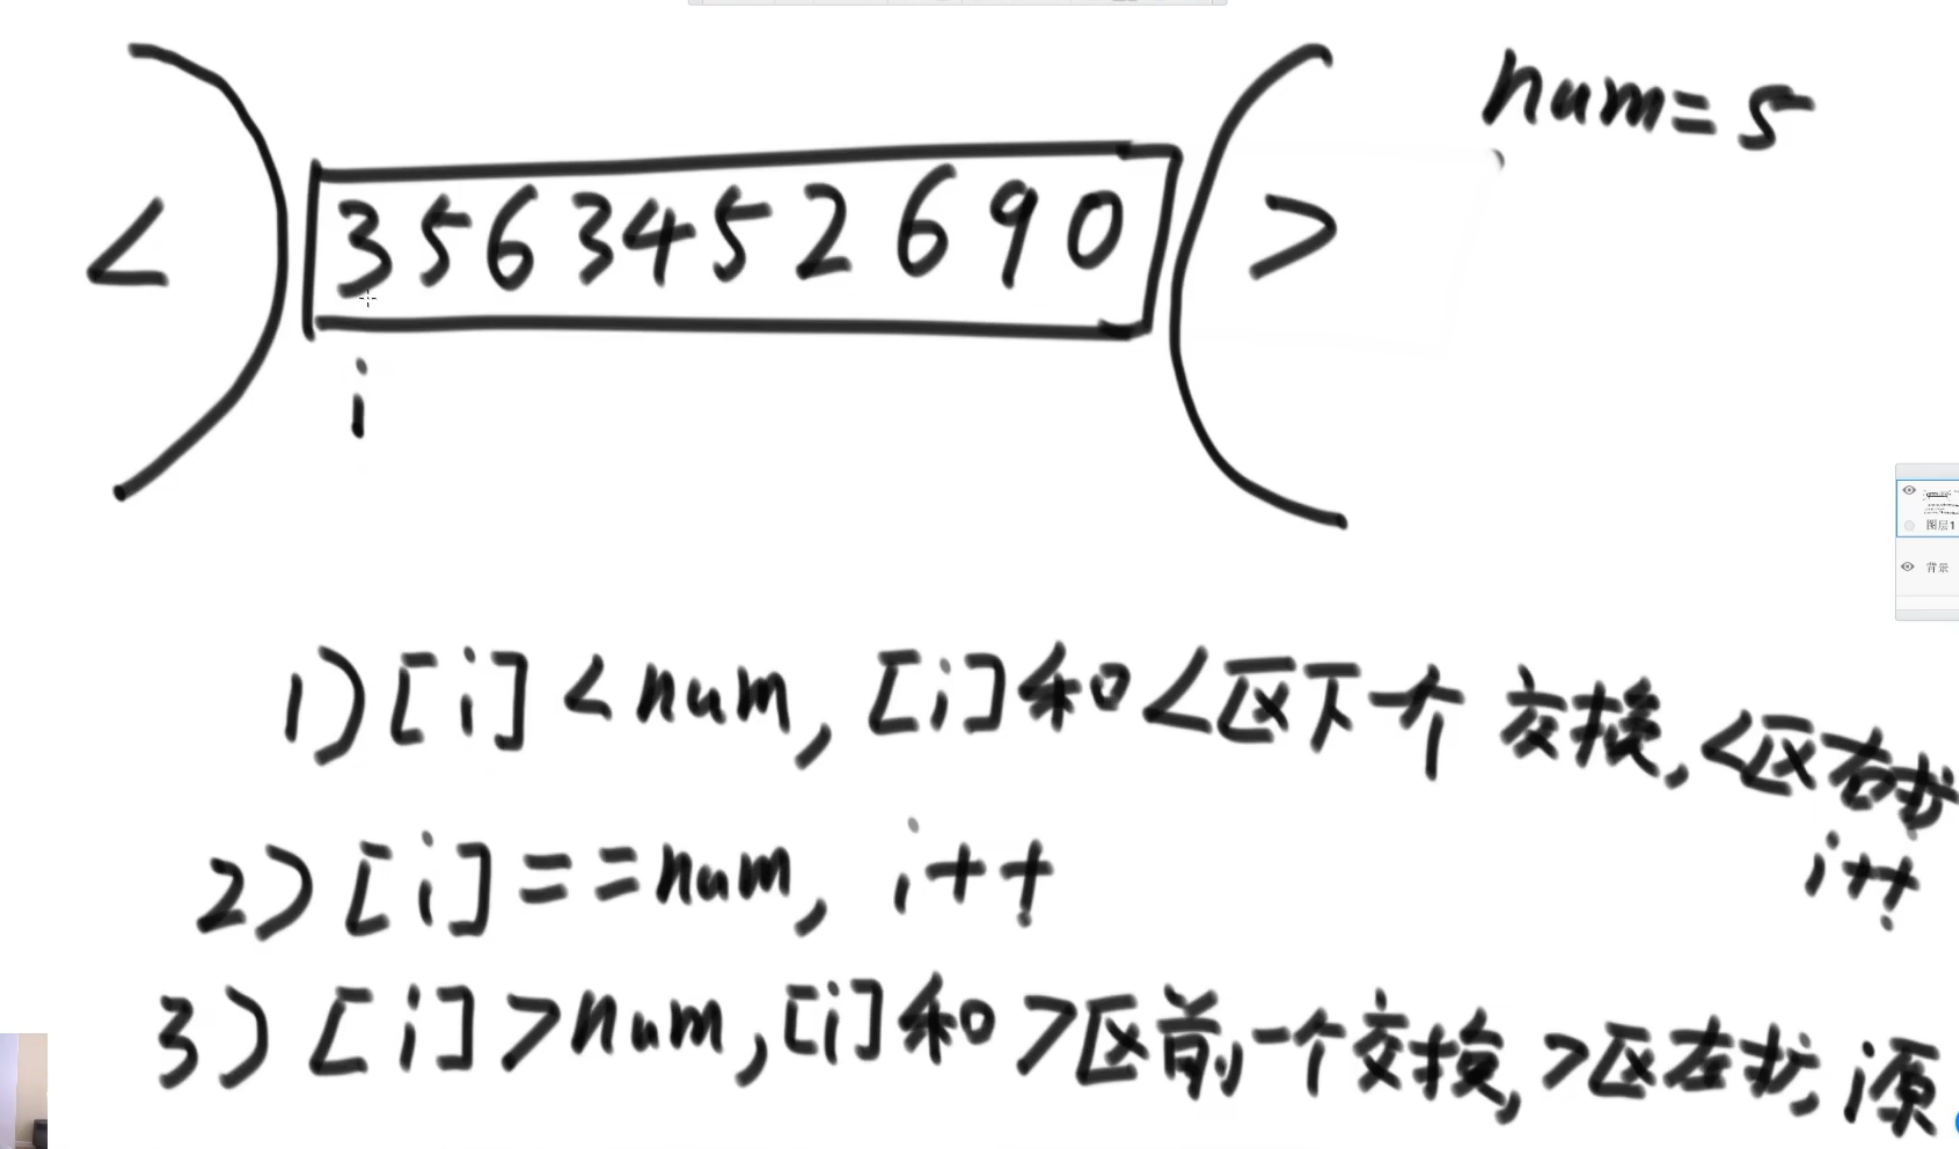 num=5
< 3 5 6 3 4 5 2 6 9 0 >
i
1) [i] < num, [i]和<区下一个 交换, <区右扩
i++
2) [i] == num, i++
3) [i] > num, [i]和 >区前一个交换, >区左扩, i原
图层1
背景